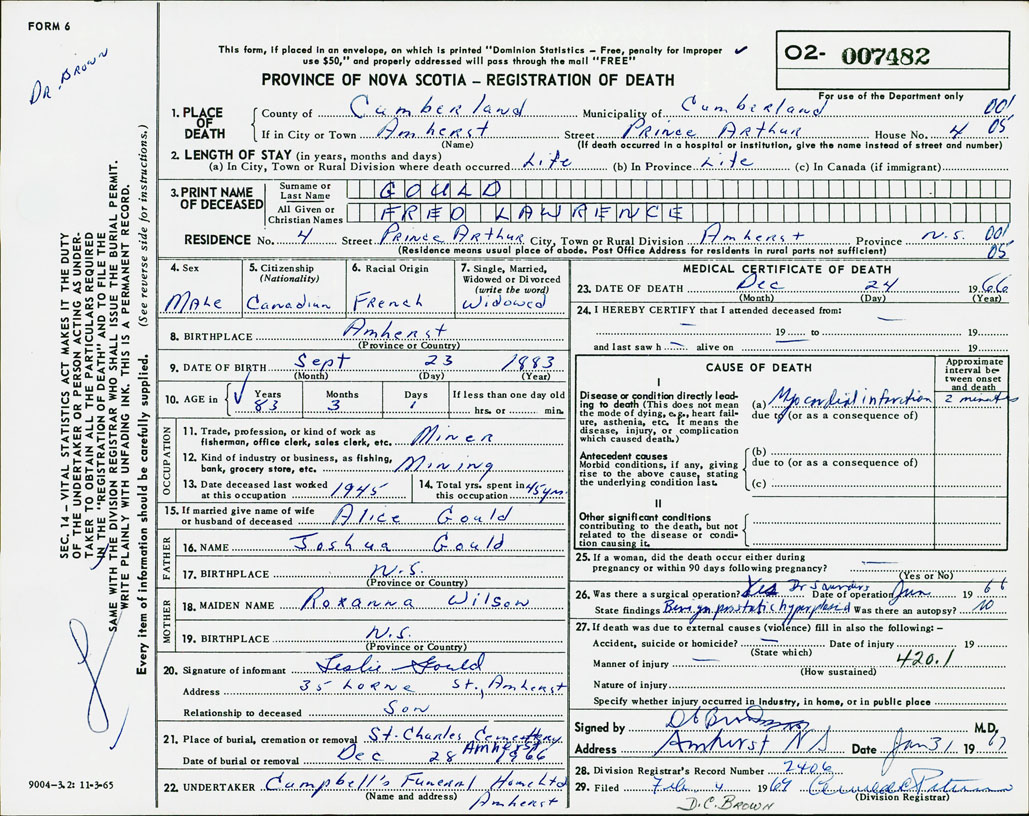 FORM 6
DR. BROWN
This form, if placed in an envelope, on which is printed "Dominion Statistics – Free, penalty for improper ✓
use $50," and properly addressed will pass through the mail "FREE"
PROVINCE OF NOVA SCOTIA – REGISTRATION OF DEATH
O2- 007482
For use of the Department only
1. PLACE OF DEATH
County of Cumberland Municipality of Cumberland 001
If in City or Town Amherst Street Prince Arthur House No. 4 05
(Name) (If death occurred in a hospital or institution, give the name instead of street and number)
2. LENGTH OF STAY (in years, months and days)
(a) In City, Town or Rural Division where death occurred Life (b) In Province Life (c) In Canada (if immigrant)
3. PRINT NAME OF DECEASED
Surname or Last Name GOULD
All Given or Christian Names FRED LAWRENCE
RESIDENCE No. 4 Street Prince Arthur City, Town or Rural Division Amherst Province N.S. 001
(Residence means usual place of abode. Post Office Address for residents in rural parts not sufficient) 05
4. Sex
Male
5. Citizenship (Nationality)
Canadian
6. Racial Origin
French
7. Single, Married, Widowed or Divorced (write the word)
Widowed
8. BIRTHPLACE Amherst
(Province or Country)
9. DATE OF BIRTH Sept 23 1883
(Month) (Day) (Year)
10. AGE in ✓ Years Months Days If less than one day old
83 3 1 hrs. or min.
OCCUPATION
11. Trade, profession, or kind of work as fisherman, office clerk, sales clerk, etc. Miner
12. Kind of industry or business, as fishing, bank, grocery store, etc. Mining
13. Date deceased last worked at this occupation 1945
14. Total yrs. spent in this occupation 45 yrs.
15. If married give name of wife or husband of deceased Alice Gould
FATHER
16. NAME Joshua Gould
17. BIRTHPLACE N.S.
(Province or Country)
MOTHER
18. MAIDEN NAME Roxanna Wilson
19. BIRTHPLACE N.S.
(Province or Country)
20. Signature of informant Leslie Gould
Address 35 Lorne St., Amherst
Relationship to deceased Son
21. Place of burial, cremation or removal St. Charles Cemetery Amherst
Date of burial or removal Dec 28 1966
22. UNDERTAKER Campbell's Funeral Home Ltd
(Name and address) Amherst
MEDICAL CERTIFICATE OF DEATH
23. DATE OF DEATH Dec 24 1966
(Month) (Day) (Year)
24. I HEREBY CERTIFY that I attended deceased from:
— 19 — to — 19
and last saw h — alive on — 19
CAUSE OF DEATH
Approximate interval between onset and death
I
Disease or condition directly leading to death (This does not mean the mode of dying, e.g., heart failure, asthenia, etc. It means the disease, injury, or complication which caused death.)
(a) Myocardial infarction 2 minutes
due to (or as a consequence of)
Antecedent causes
Morbid conditions, if any, giving rise to the above cause, stating the underlying condition last.
(b)
due to (or as a consequence of)
(c)
II
Other significant conditions contributing to the death, but not related to the disease or condition causing it.
25. If a woman, did the death occur either during pregnancy or within 90 days following pregnancy? —
(Yes or No)
26. Was there a surgical operation? Yes Dr Saunders Date of operation June 1966
State findings Benign prostatic hyperplasia Was there an autopsy? NO
27. If death was due to external causes (violence) fill in also the following: –
Accident, suicide or homicide? — Date of injury 19
(State which) 420.1
Manner of injury —
(How sustained)
Nature of injury
Specify whether injury occurred in industry, in home, or in public place
Signed by M.D.
Address Amherst NS Date Jan 31 1967
28. Division Registrar's Record Number 2406
29. Filed Feb 4 1967
(Division Registrar)
D.C. BROWN
SEC. 14 – VITAL STATISTICS ACT MAKES IT THE DUTY
OF THE UNDERTAKER OR PERSON ACTING AS UNDER-
TAKER TO OBTAIN ALL THE PARTICULARS REQUIRED
IN THE "REGISTRATION OF DEATH" AND TO FILE THE
SAME WITH THE DIVISION REGISTRAR WHO SHALL ISSUE THE BURIAL PERMIT.
WRITE PLAINLY WITH UNFADING INK. THIS IS A PERMANENT RECORD.
Every item of information should be carefully supplied. (See reverse side for instructions.)
9004–3.2: 11-3-65